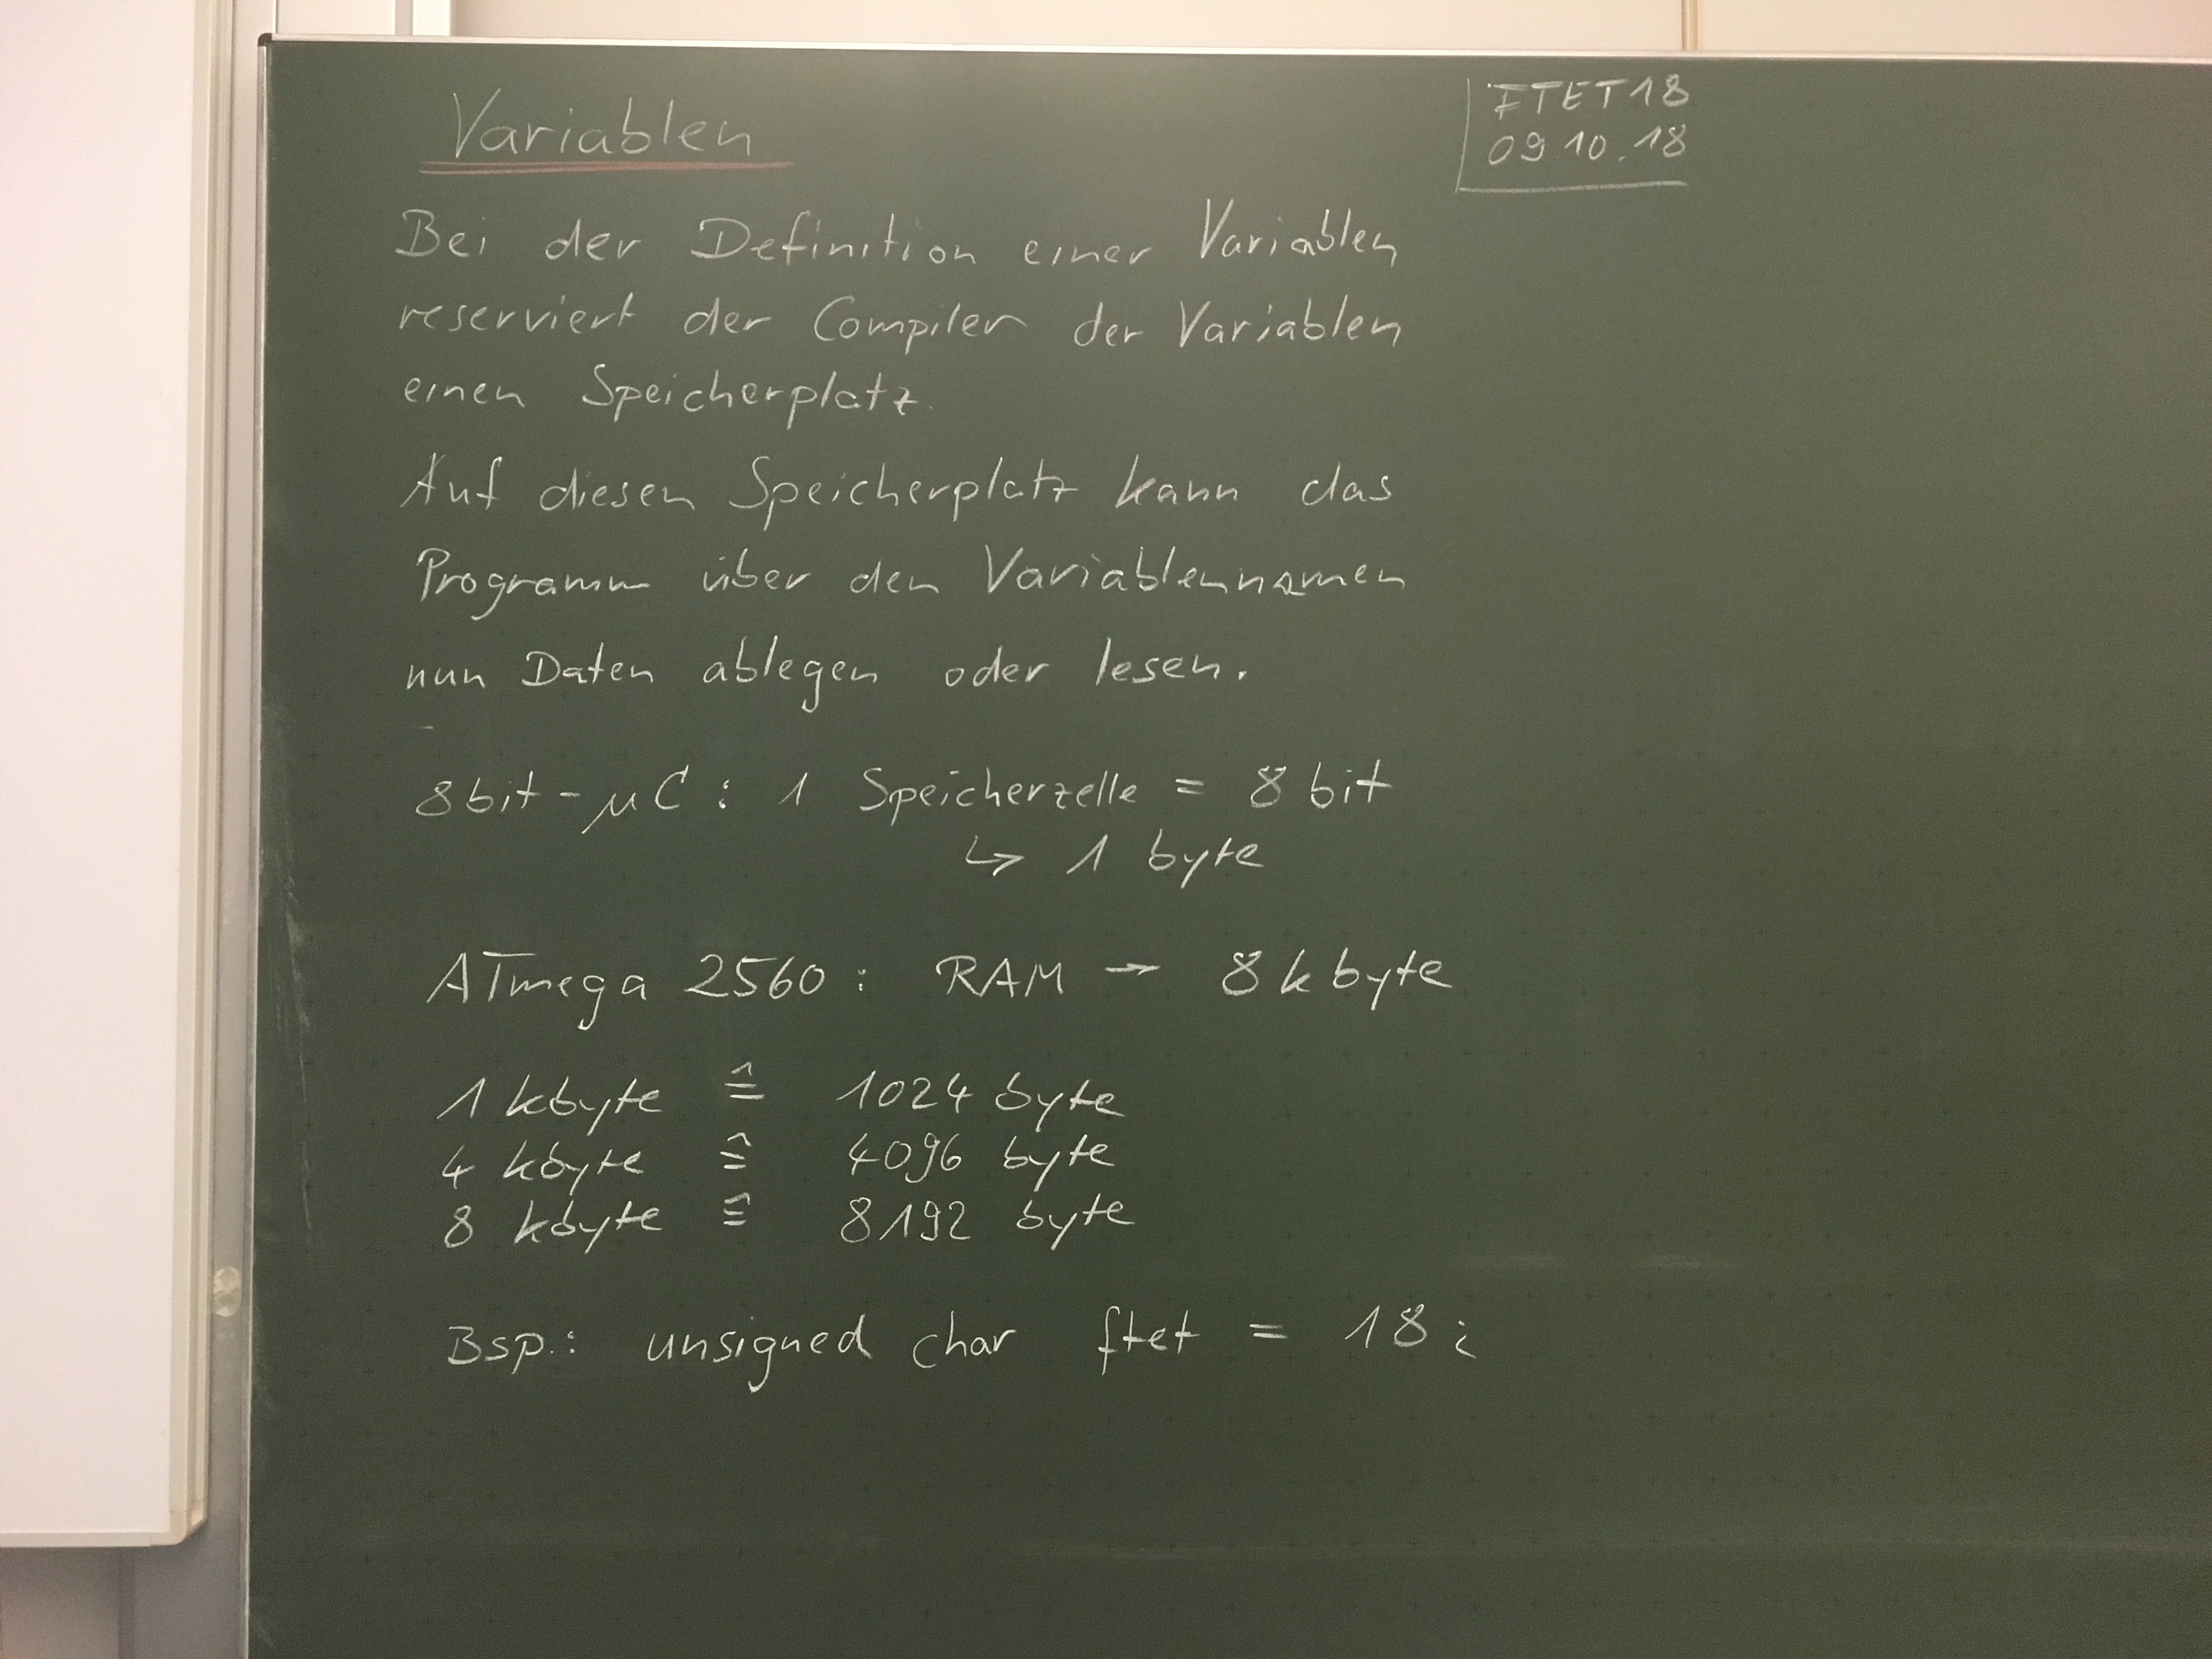 Variablen
FTET18
09.10.18
Bei der Definition einer Variablen
reserviert der Compiler der Variablen
einen Speicherplatz.
Auf diesen Speicherplatz kann das
Programm über den Variablennamen
nun Daten ablegen oder lesen.
8bit-µC: 1 Speicherzelle = 8 bit
↳ 1 byte
ATmega 2560: RAM → 8kbyte
1 kbyte ≙ 1024 byte
4 kbyte ≙ 4096 byte
8 kbyte ≙ 8192 byte
Bsp.: unsigned char ftet = 18;